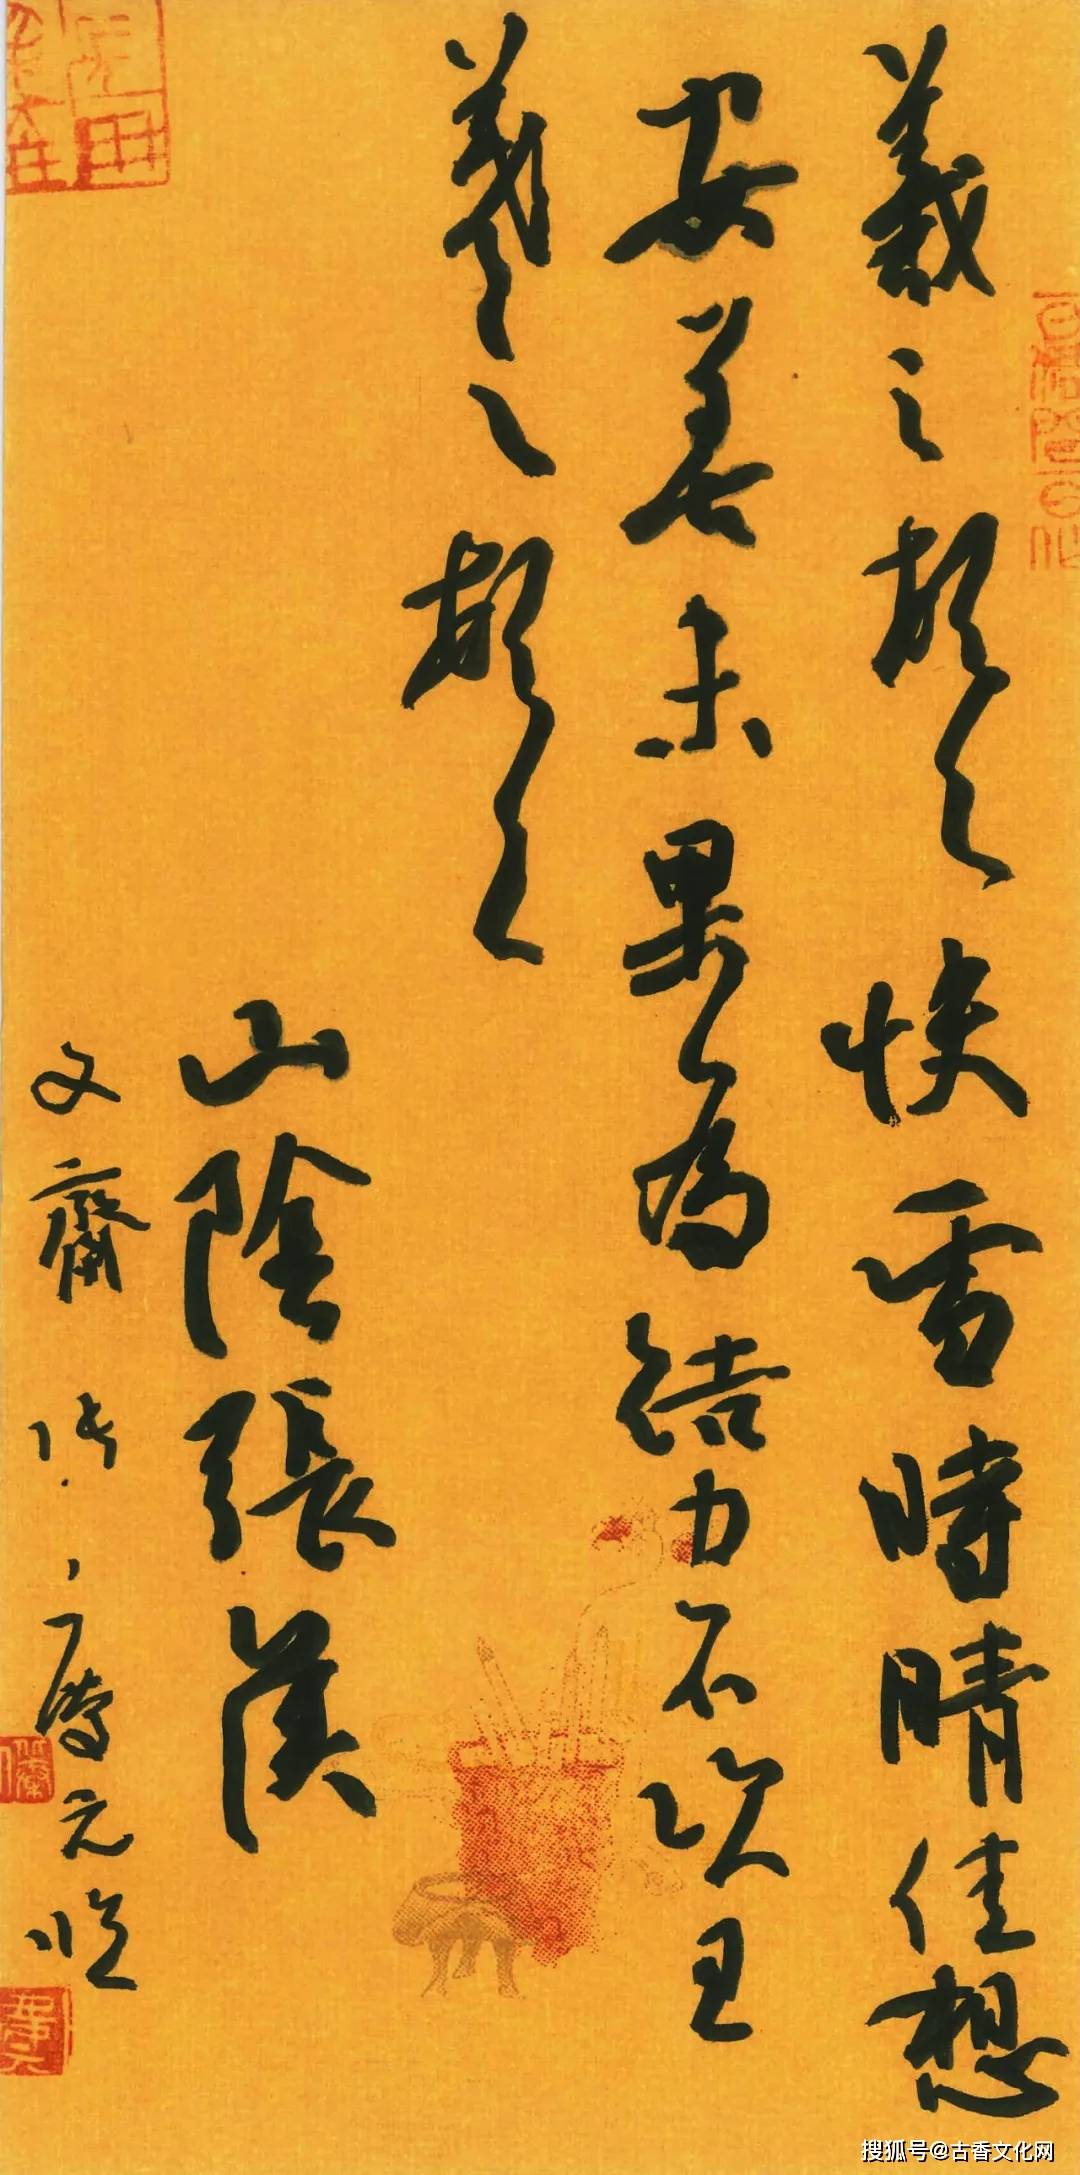 羲之頓首快雪時晴佳想
安善未果為結力不次王
羲之頓首
山陰張侯
文齋 元臨
搜狐号@古香文化网